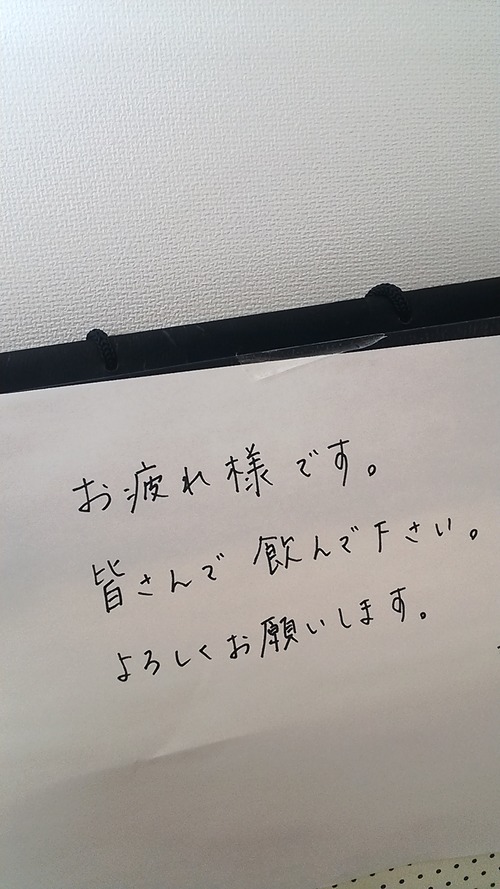 お疲れ様です。
皆さんで飲んで下さい。
よろしくお願いします。